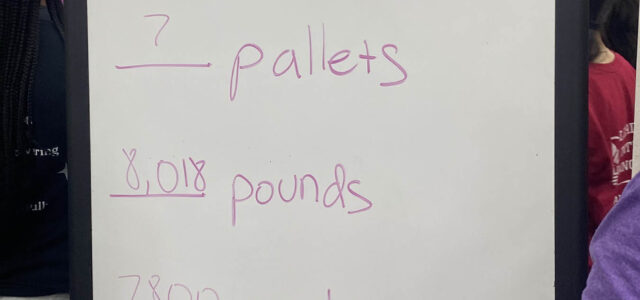 7 pallets
8,018 pounds
7800